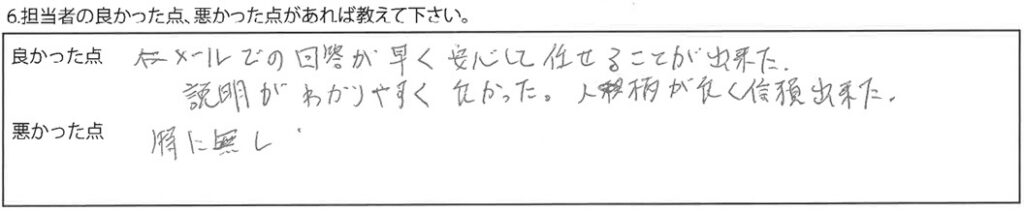 6.担当者の良かった点、悪かった点があれば教えて下さい。
良かった点 メールでの回答が早く安心して任せることが出来た.
説明がわかりやすく良かった。人柄が良く信頼出来た.
悪かった点
特に無し